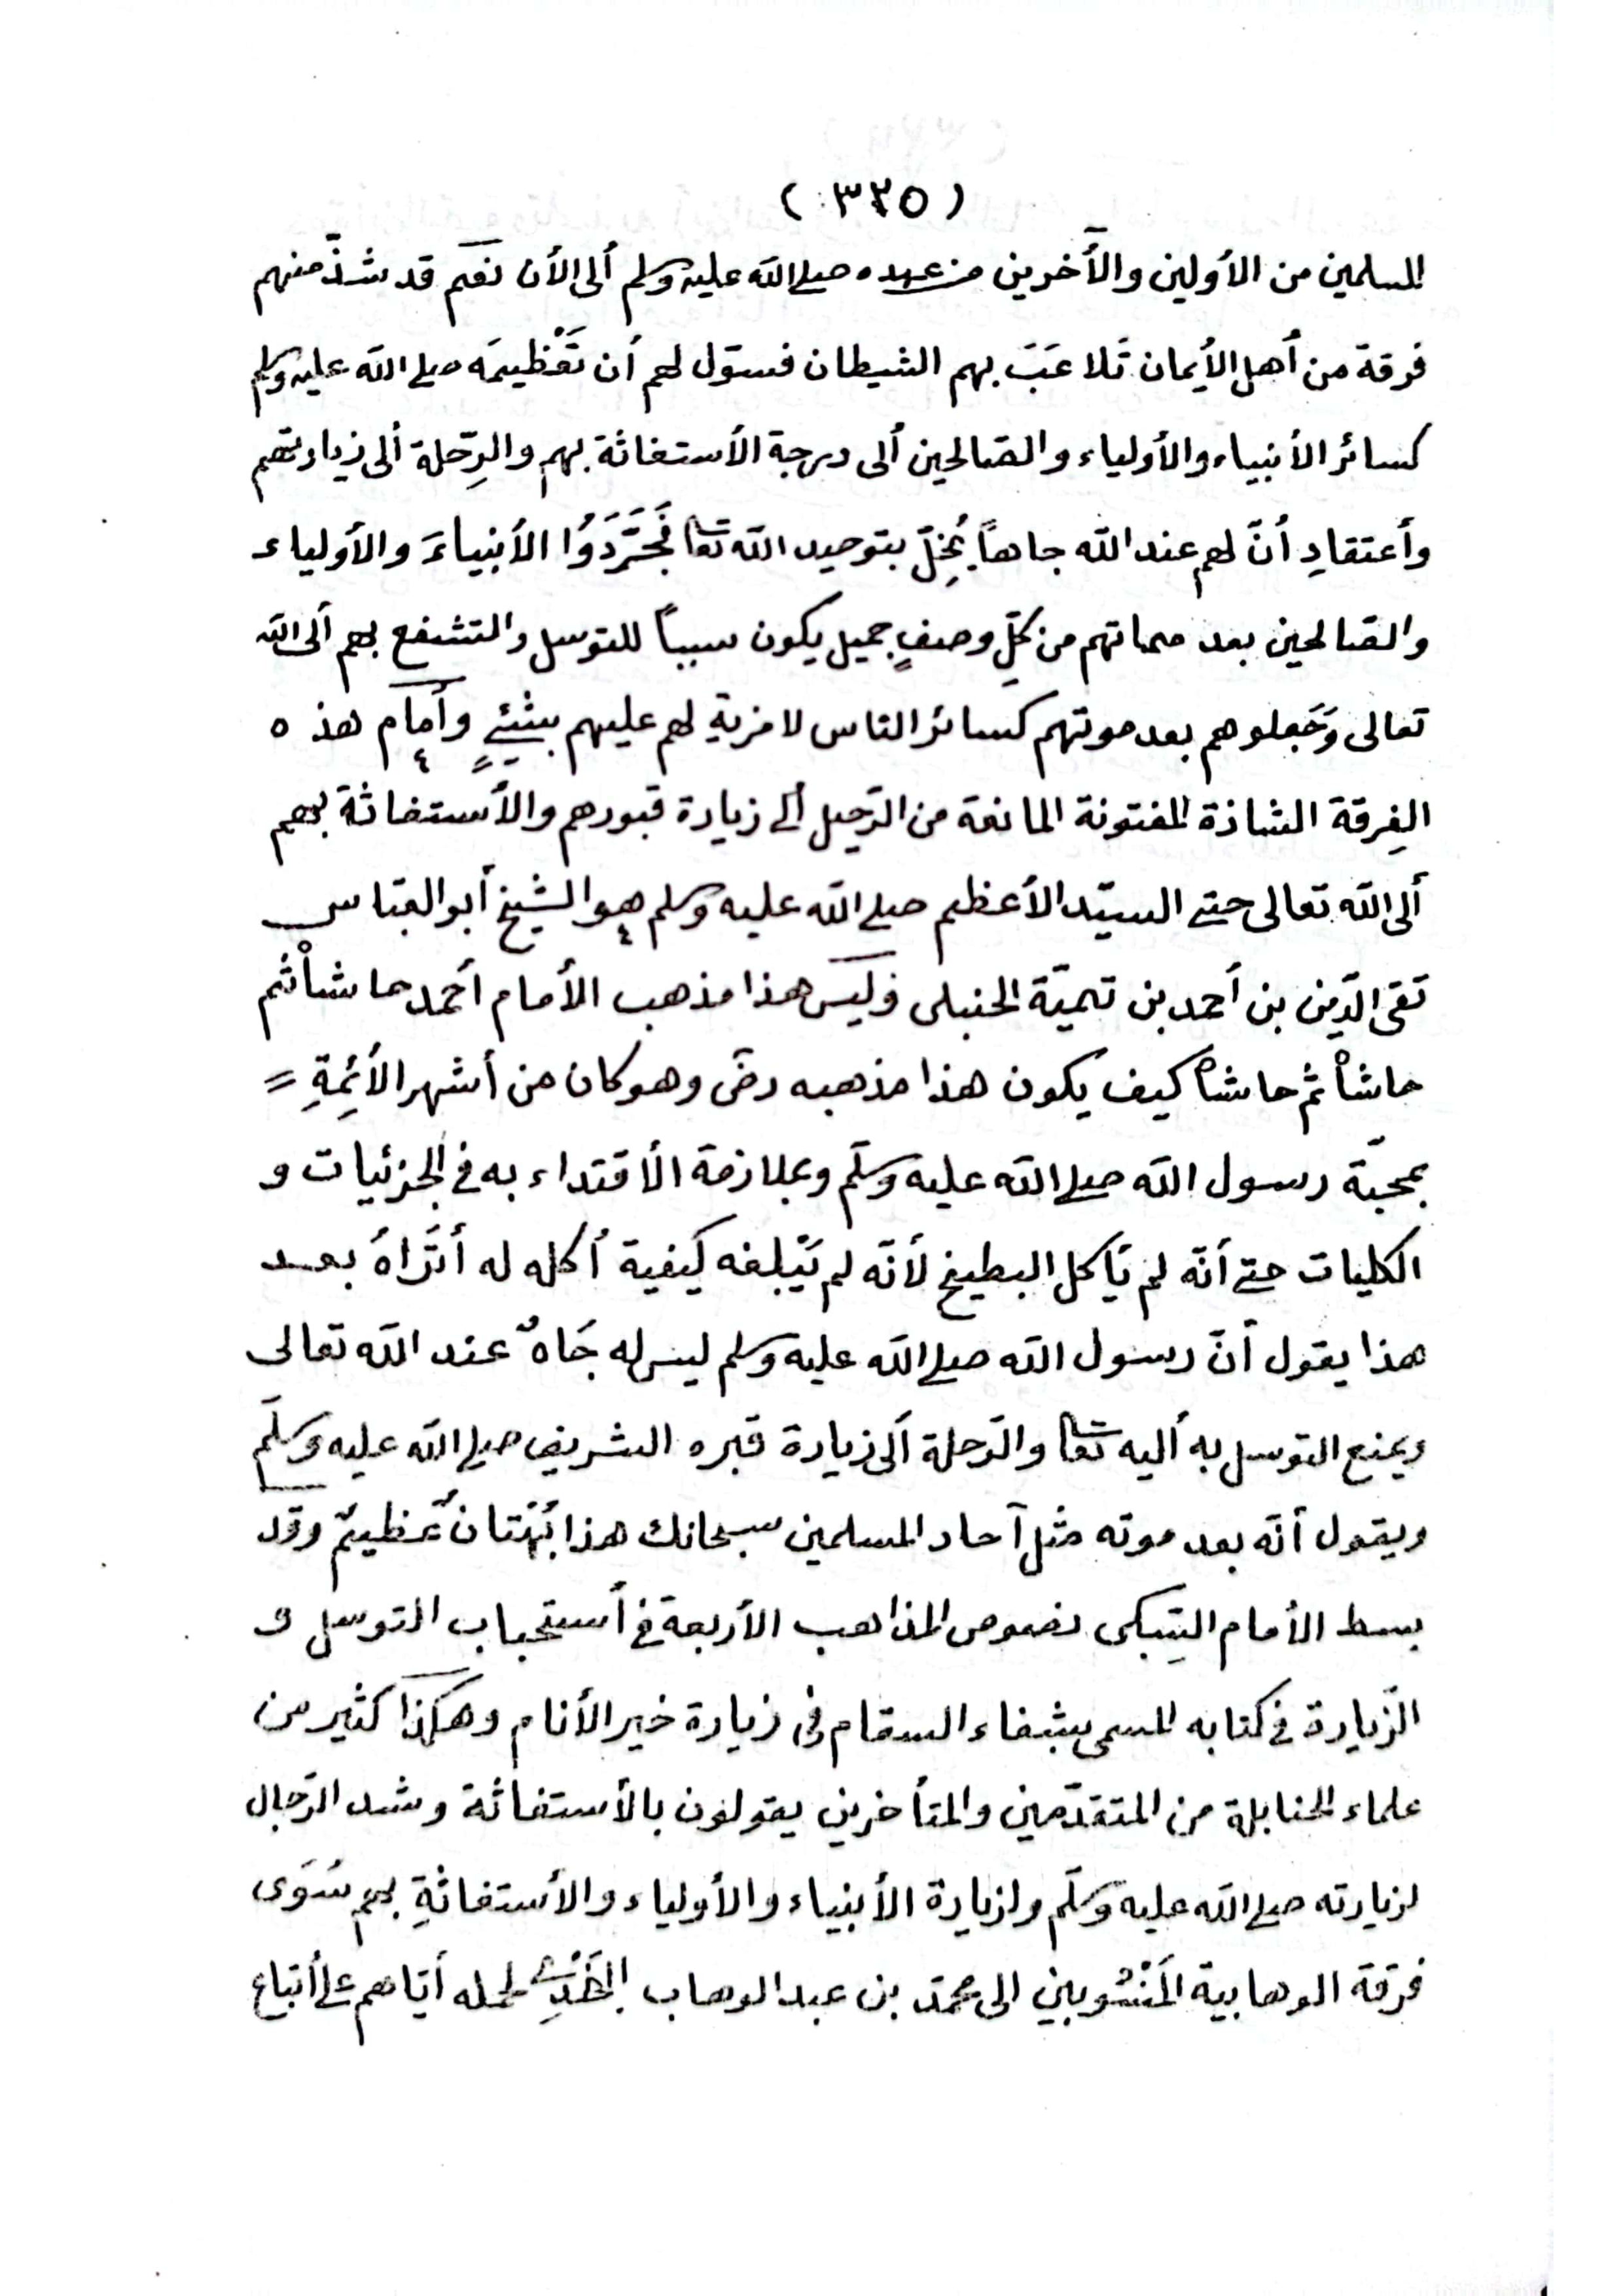 (٣٢٥)
المسلمين من الأولين والأخرين من عهده صلى الله عليه وسلم ألى الأن نعَم قد شذّ منهم
فرقة من أهل الأيمان تَلاعَبَ بهم الشيطان فسوّل لهم أن تَعْظيمَه صلى الله عليه وسلم
كسائر الأنبياء والأولياء والصّالحين ألى درجة الأستغاثة بهم والرِّحلة ألى زيارتهم
وأعتقادِ أنّ لهم عند الله جاهاً يُخِلّ بتوحيد الله تعا فَجَرَّدَوُا الأنبياءَ والأولياء
والصّالحين بعد مماتهم من كلِّ وصفٍ جميل يكون سبباً للتوسل والتشفع بهم ألى الله
تعالى وَجَعلوهم بعد موتهم كسائر الناس لا مزية لهم عليهم بشئٍ وأمام هذه
الفِرقة الشاذة المفتونة المانعة من الرّحيل ألى زيارة قبورهم والأستغاثة بهم
ألى الله تعالى حتى السيّد الأعظم صلى الله عليه وسلم هو الشيخ أبو العبّاس
تقى الدّين بن أحمد بن تيميّة الحنبلى وَليسَ هذا مذهب الأمام أحمد حاشاْ ثم
حاشاْ ثم حاشاْ كيف يكون هذا مذهبه رضَ وهو كان من أشهر الأئِمةِ =
بمحبّة رسول الله صلى الله عليه وسلّم وبملازمة الأقتداء به فى الجزئيات و
الكليات حتى أنّه لم يَأكل البطيخ لأنّه لم يَبْلغه كيفية أكله له أتَراهُ بعد
هذا يقول أنّ رسول الله صلى الله عليه وسلم ليس له جَاهٌ عند الله تعالى
ويمنع التوسل به أليه تعا والرّحلة ألى زيارة قبره الشريف صلى الله عليه وسلّم
ويقول أنّه بعد موته مثل آحاد المسلمين سبحانك هذا بُهْتانٌ عَظيمٌ وقد
بسط الأمام السّبكى نصوص المذاهب الأربعة فى أستحباب التوسل و
الزّيارة فى كتابه المسمى بشفاء السقام فى زيارة خير الأنام وهكذا كثير من
علماء الحنابلة من المتقدّمين والمتأخرين يقولون بالأستغاثة وشد الرّحال
لزيارته صلى الله عليه وسلّم ولزيارة الأنبياء والأولياء والأستغاثةِ بهم سُوَى
فرقة الوهابية المَنْسُوبين الى محمّد بن عبد الوهاب لحمله أيّاهم على أتباع